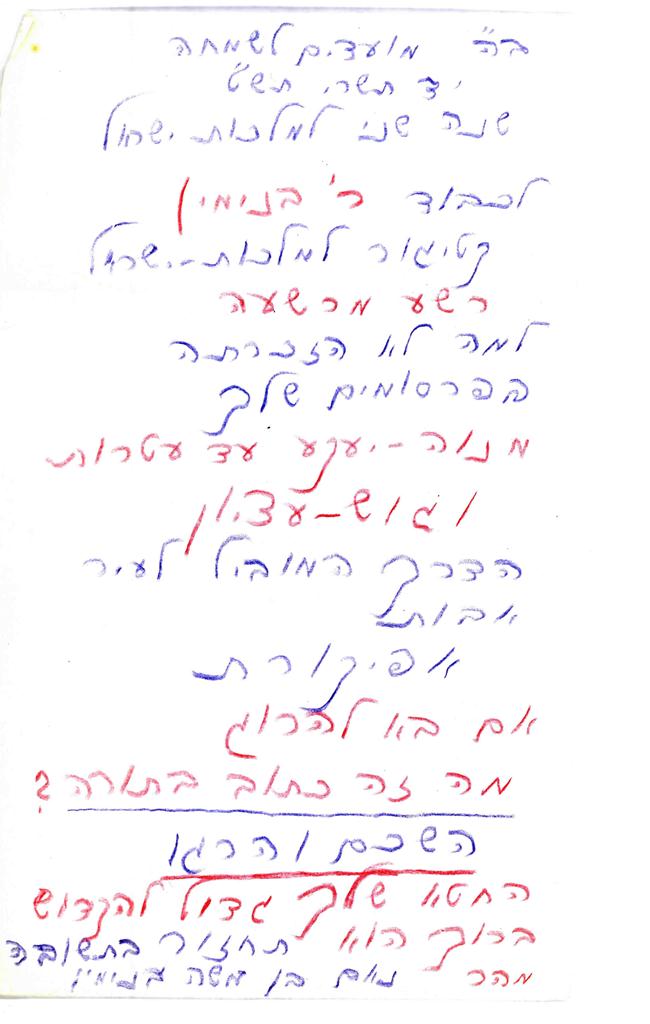 בה" מועדים לשמחה
יד תשרי תש"ט
שנה שני למלכות-ישראל
לכבוד ר' בנימין
קטיגור למלכות-ישראל
רשע מרשעה
למה לא הזכרתה
הפרסומים שלך
מנוה-יעקע עד עטרות
וגוש-עציון
הדרך המוביל לעיר
אבות
אפיקורת
אם בא להרוג
מה זה כתוב בתורה?
השכם והרגו
החטא שלך גדול להקדוש
ברוך הוא תחזור בתשובה
מהר נאם בן משה בנימין